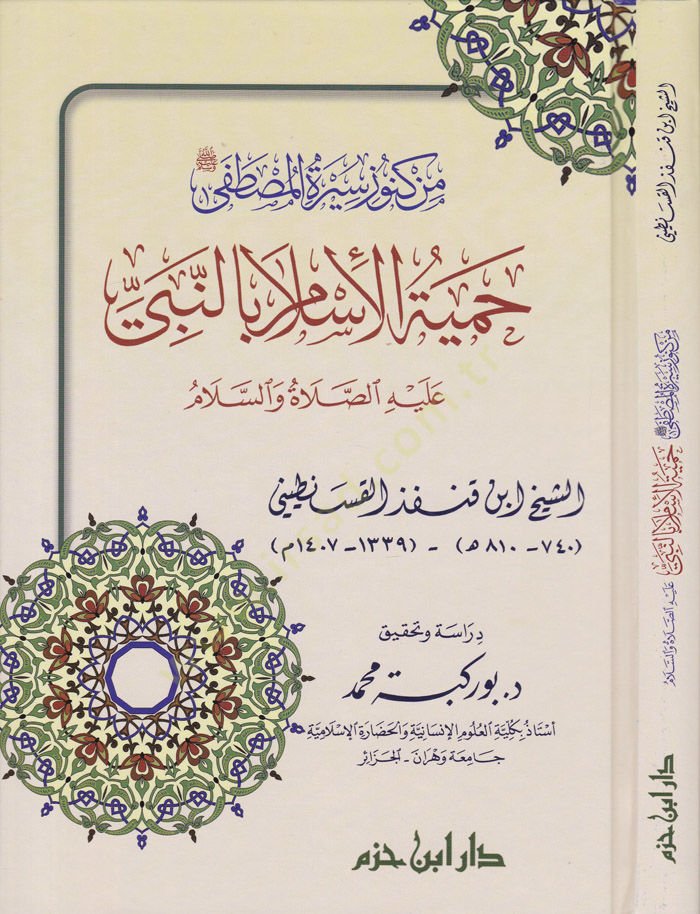 مِنْ كُنُوزِ سِيرَةِ المُصْطَفَى ﷺ
حميةُ الإسلام بالنَّبيِّ
عَلَيْهِ الصَّلَاةُ وَالسَّلَامُ
الشيخ ابن قنفذ القسانطيني
(٧٤٠ - ٨١٠ هـ) - (١٣٣٩ - ١٤٠٧م)
دِرَاسَة وَتحقِيق
د. بوركبة محمد
أسْتَاذ بِكُليَّةِ العُلُومِ الإنسَانِيَّة وَالحَضَارَةِ الإسْلَامِيَّة
جَامِعَة وَهْرَان - الجَزَائِر
دار ابن حزم
الشيخ ابن قنفذ القسانطيني
مِنْ كُنُوزِ سِيرَةِ المُصْطَفَى ﷺ
حميةُ الإسلام بالنَّبيِّ
عَلَيْهِ الصَّلَاةُ وَالسَّلَامُ
دار ابن حزم